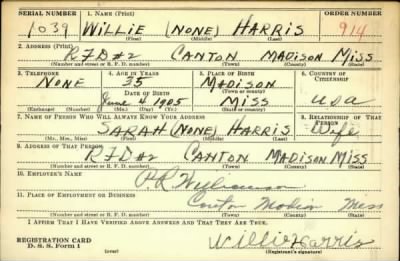 SERIAL NUMBER 1. NAME (Print) ORDER NUMBER
1039 WILLIE (NONE) HARRIS 914
(First) (Middle) (Last)
2. ADDRESS (Print)
RFD#2 CANTON MADISON MISS
(Number and street or R. F. D. number) (Town) (County) (State)
3. TELEPHONE 4. AGE IN YEARS 5. PLACE OF BIRTH 6. COUNTRY OF CITIZENSHIP
NONE 35 MADISON
DATE OF BIRTH (Town or county)
June 4 1905 MISS USA
(Exchange) (Number) (Mo.) (Day) (Yr.) (State or country)
7. NAME OF PERSON WHO WILL ALWAYS KNOW YOUR ADDRESS 8. RELATIONSHIP OF THAT PERSON
SARAH (NONE) HARRIS Wife
(Mr., Mrs., Miss) (First) (Middle) (Last)
9. ADDRESS OF THAT PERSON
RFD#2 CANTON MADISON MISS
(Number and street or R. F. D. number) (Town) (County) (State)
10. EMPLOYER'S NAME
P.R. Williamson
11. PLACE OF EMPLOYMENT OR BUSINESS
Canton Madison Miss
(Number and street or R. F. D. number) (Town) (County) (State)
I AFFIRM THAT I HAVE VERIFIED ABOVE ANSWERS AND THAT THEY ARE TRUE.
REGISTRATION CARD
D. S. S. Form 1 (over) Willie Harris
(Registrant's signature)